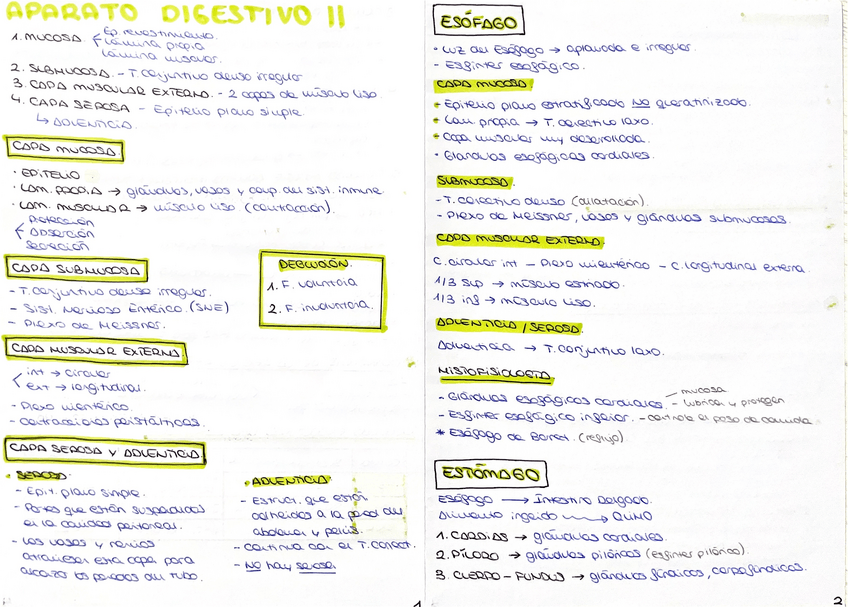 APARATO DIGESTIVO II
1. MUCOSA. Ep. revestimiento.
Lámina propia
Lámina muscular.
2. SUBMUCOSA. - T. conjuntivo denso irregular
3. CAPA MUSCULAR EXTERNA. - 2 capas de músculo liso.
4. CAPA SEROSA - Epitelio plano simple.
↳ ADVENTICIA.
CAPA MUCOSA
· EPITELIO
· LAM. PROPIA → glándulas, vasos y comp. del sist. inmune.
· LAM. MUSCULAR → músculo liso (contracción).
Protección
Absorción
Secreción
CAPA SUBMUCOSA
- T. conjuntivo denso irregular.
- Sist. Nervioso Entérico. (SNE)
- Plexo de Meissner.
DEGLUCIÓN.
1. F. voluntaria
2. F. involuntaria.
CAPA MUSCULAR EXTERNA.
int → circular
ext → longitudinal.
- Plexo mientérico.
- contracciones peristálticas.
CAPA SEROSA Y ADVENTICIA
· SEROSA:
- Epit. plano simple.
- Partes que están suspendidas
en la cavidad peritoneal.
- Los vasos y nervios
atraviesan esta capa para
alcanzar las paredes del tubo.
· ADVENTICIA
- Estruct. que están
adheridas a la pared del
abdomen y pelvis.
- continua con el T. conect.
- No hay serosa
1
ESÓFAGO
· Luz del Esófago → aplanada e irregular.
- Esfínter esofágico.
CAPA MUCOSA.
- Epitelio plano estratificado NO queratinizado.
- Lam. propia → T. conectivo laxo.
- Capa muscular muy desarrollada.
· Glándulas esofágicas cardiales.
SUBMUCOSA.
- T. conectivo denso (dilatación).
- Plexo de Meissner, vasos y glándulas submucosas.
CAPA MUSCULAR EXTERNA.
C. circular int - Plexo mientérico - C. longitudinal externa.
1/3 sup → músculo estriado.
1/3 inf → músculo liso.
ADVENTICIA / SEROSA.
Adventicia → T. conjuntivo laxo.
HISTOFISIOLOGÍA
- Glándulas esofágicas cardiales. - mucosa
- lubrican y protegen
- Esfínter esofágico inferior. - controla el paso de comida
* Esófago de Barret. (reflujo).
ESTÓMAGO
Esófago → Intestino Delgado.
Alimento ingerido → QUIMO
1. CARDIAS → glándulas cardiales.
2. PÍLORO → glándulas pilóricas (esfínter pilórico).
3. CUERPO - FUNDUS → glándulas fúndicas, corpofúndicas.
2